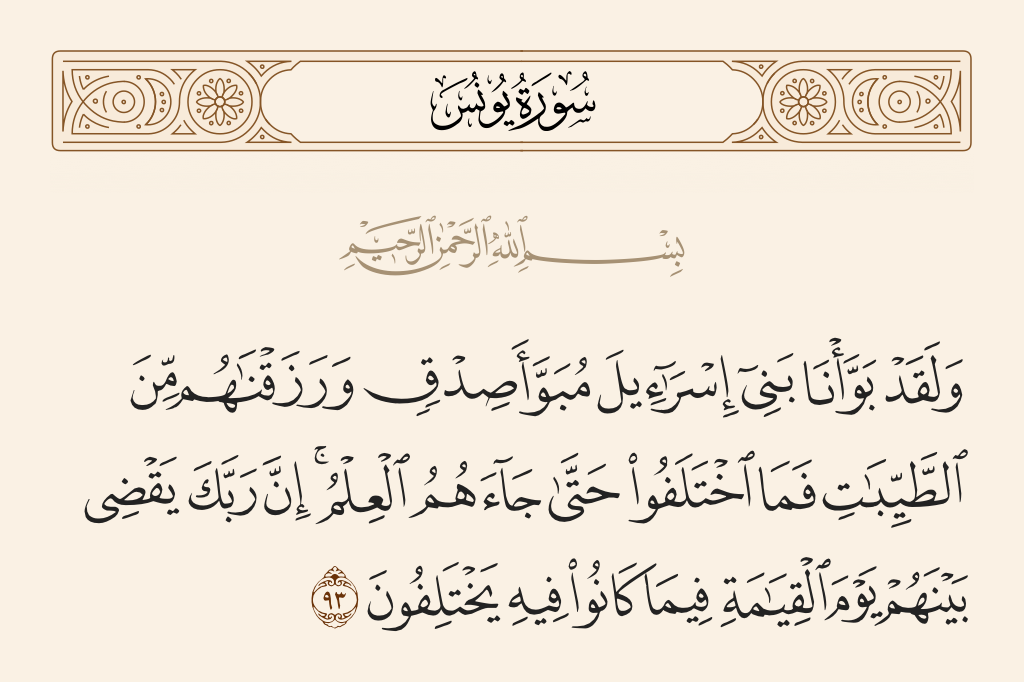 سُورَةُ يُونُسَ
بِسْمِ ٱللَّهِ ٱلرَّحْمَٰنِ ٱلرَّحِيمِ
وَلَقَدْ بَوَّأْنَا بَنِىٓ إِسْرَٰٓءِيلَ مُبَوَّأَ صِدْقٍ وَرَزَقْنَٰهُم مِّنَ
ٱلطَّيِّبَٰتِ فَمَا ٱخْتَلَفُوا۟ حَتَّىٰ جَآءَهُمُ ٱلْعِلْمُ ۚ إِنَّ رَبَّكَ يَقْضِى
بَيْنَهُمْ يَوْمَ ٱلْقِيَٰمَةِ فِيمَا كَانُوا۟ فِيهِ يَخْتَلِفُونَ ٩٣